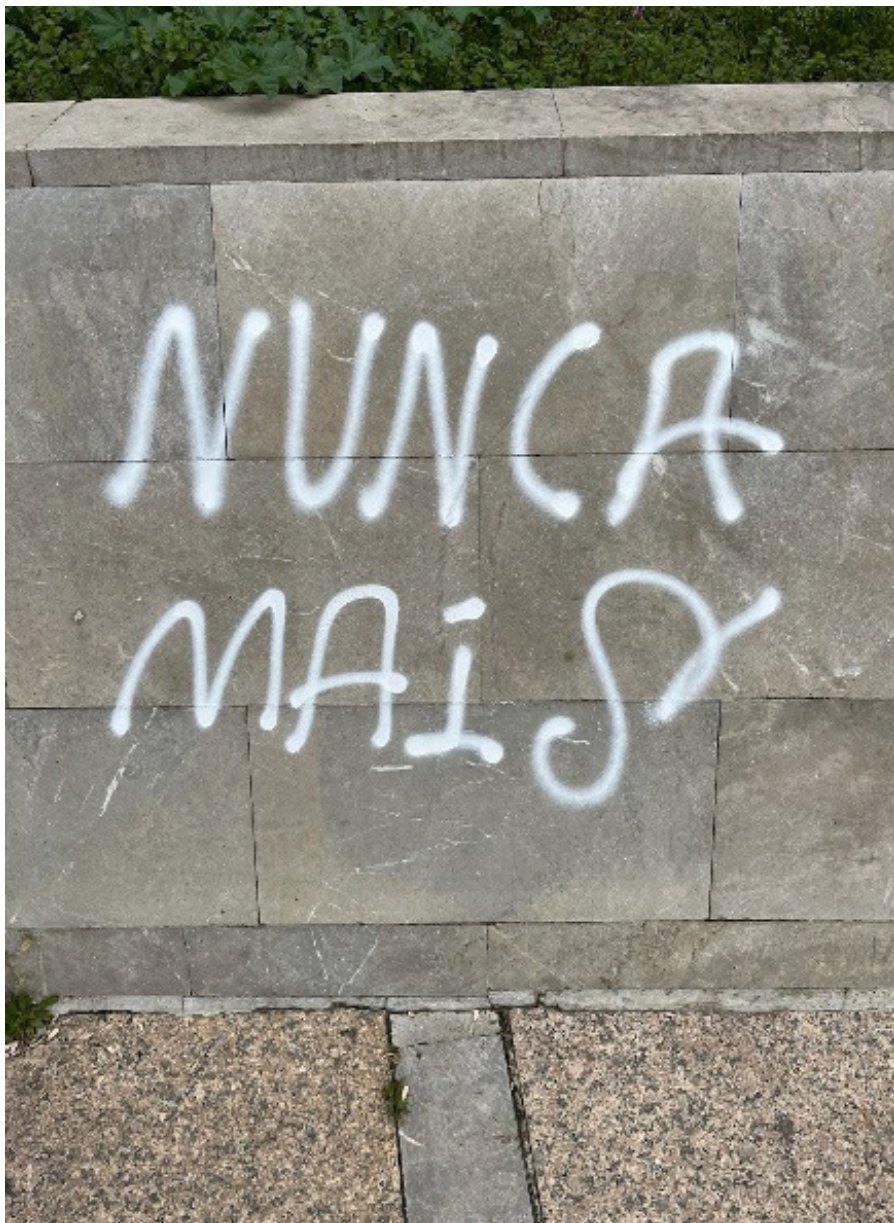 NUNCA
MAiS